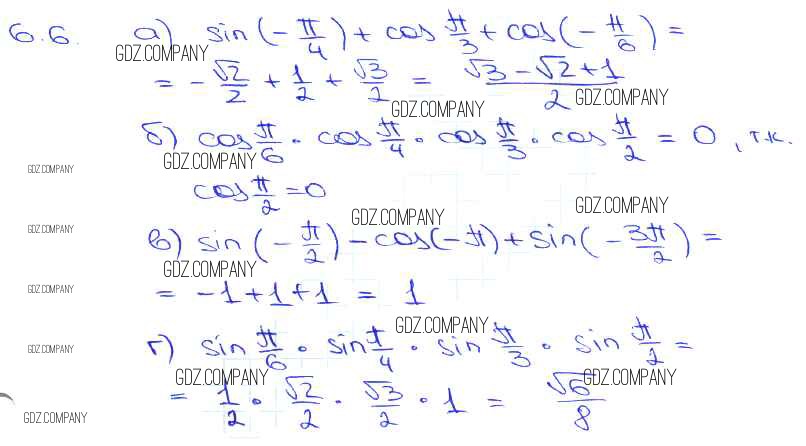 6.6. а) sin(-π/4) + cos π/3 + cos(-π/6) =
GDZ.COMPANY
= -√2/2 + 1/2 + √3/2 = (√3 - √2 + 1)/2
GDZ.COMPANY GDZ.COMPANY
б) cos π/6 · cos π/4 · cos π/3 · cos π/2 = 0, т.к.
GDZ.COMPANY GDZ.COMPANY
cos π/2 = 0
GDZ.COMPANY GDZ.COMPANY
GDZ.COMPANY
в) sin(-π/2) - cos(-π) + sin(-3π/2) =
GDZ.COMPANY
= -1 + 1 + 1 = 1
GDZ.COMPANY
GDZ.COMPANY
г) sin π/6 · sin π/4 · sin π/3 · sin π/2 =
GDZ.COMPANY
GDZ.COMPANY GDZ.COMPANY
= 1/2 · √2/2 · √3/2 · 1 = √6/8
GDZ.COMPANY